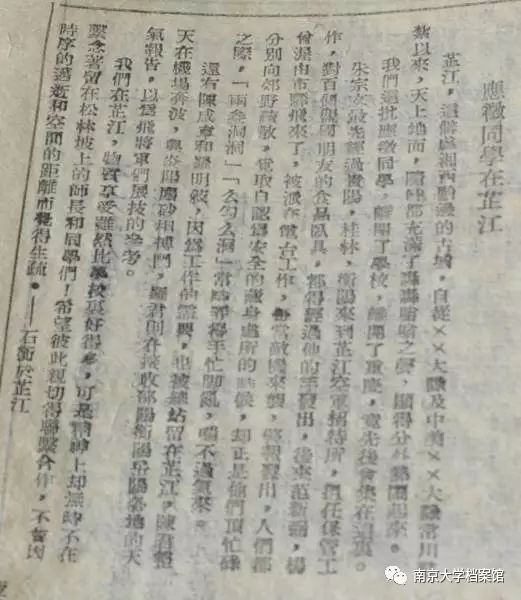 應徵同學在芷江
芷江，這僻處湘西黔邊的古城，自從××大隊及中美××大隊常川
紮以來，天上地面，隨時都充滿了轟轟嗡嗡之聲，顯得分外熱鬧起來。
我們這批應徵同學，離開了學校，離開了重慶，竟先後會集在這裏。
朱宗 最先經過貴陽，桂林，衡陽來到芷江空軍招待所，担任保管工
作，對百餘 國朋友的食品臥具，都得經過他的手發出，後來范 ，楊
曾湜由市縣飛來了，被派在電台工作，每當敵機來襲，警報發出，人們都
分別向郊野疏散，覓取自認為安全的藏身處所的時候，却正是他們頂忙碌
之際，「兩叁洞洞」「么勾么洞」常時弄得手忙脚亂，喘不過氣來。
還有陳咸章和羅明 ，因為工作的需要，也被 站留在芷江，陳君整
天在機場奔波，與炎陽塵砂相搏鬥，羅君則在接收邵陽衡陽岳陽各地的天
氣報告，以為飛將軍們展技的參考。
我們在芷江，物質享受雖然比學校裏好得多，可是精神上却無時不在
繫念著留在松林坡上的師長和同學們！希望彼此親切得聯繫合作，不會因
時序的遞遷和空間的距離而覺得生疏。——石衡於芷江
南京大学档案馆